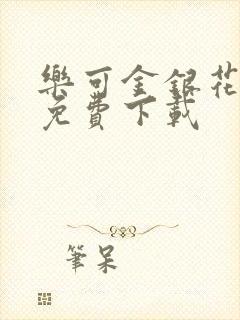 樂可金銀花
免費下載
筆呆